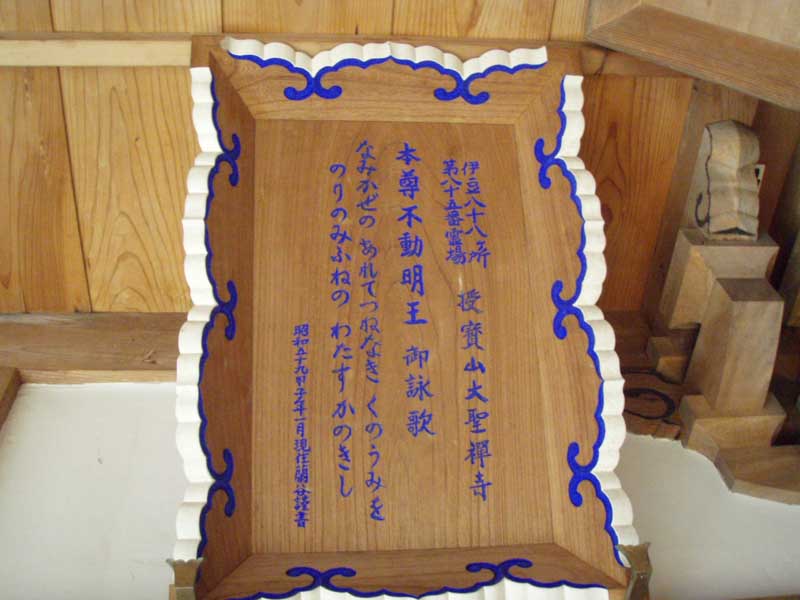 伊豆八十八ヶ所
第八十五番霊場
授寳山大聖禪寺
本尊不動明王 御詠歌
なみかぜの あれてつねなき くのうみを
のりのみふねの わたすかのきし
昭和五十九甲子年一月現住蘭谷謹書